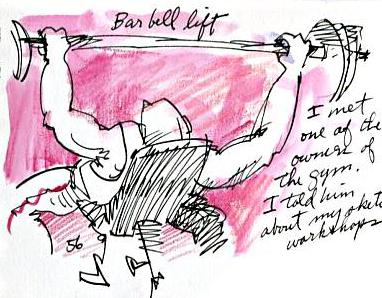 Barbell lift
I met
one of the
owners of
the gym.
I told him
about my sketch
workshops
56